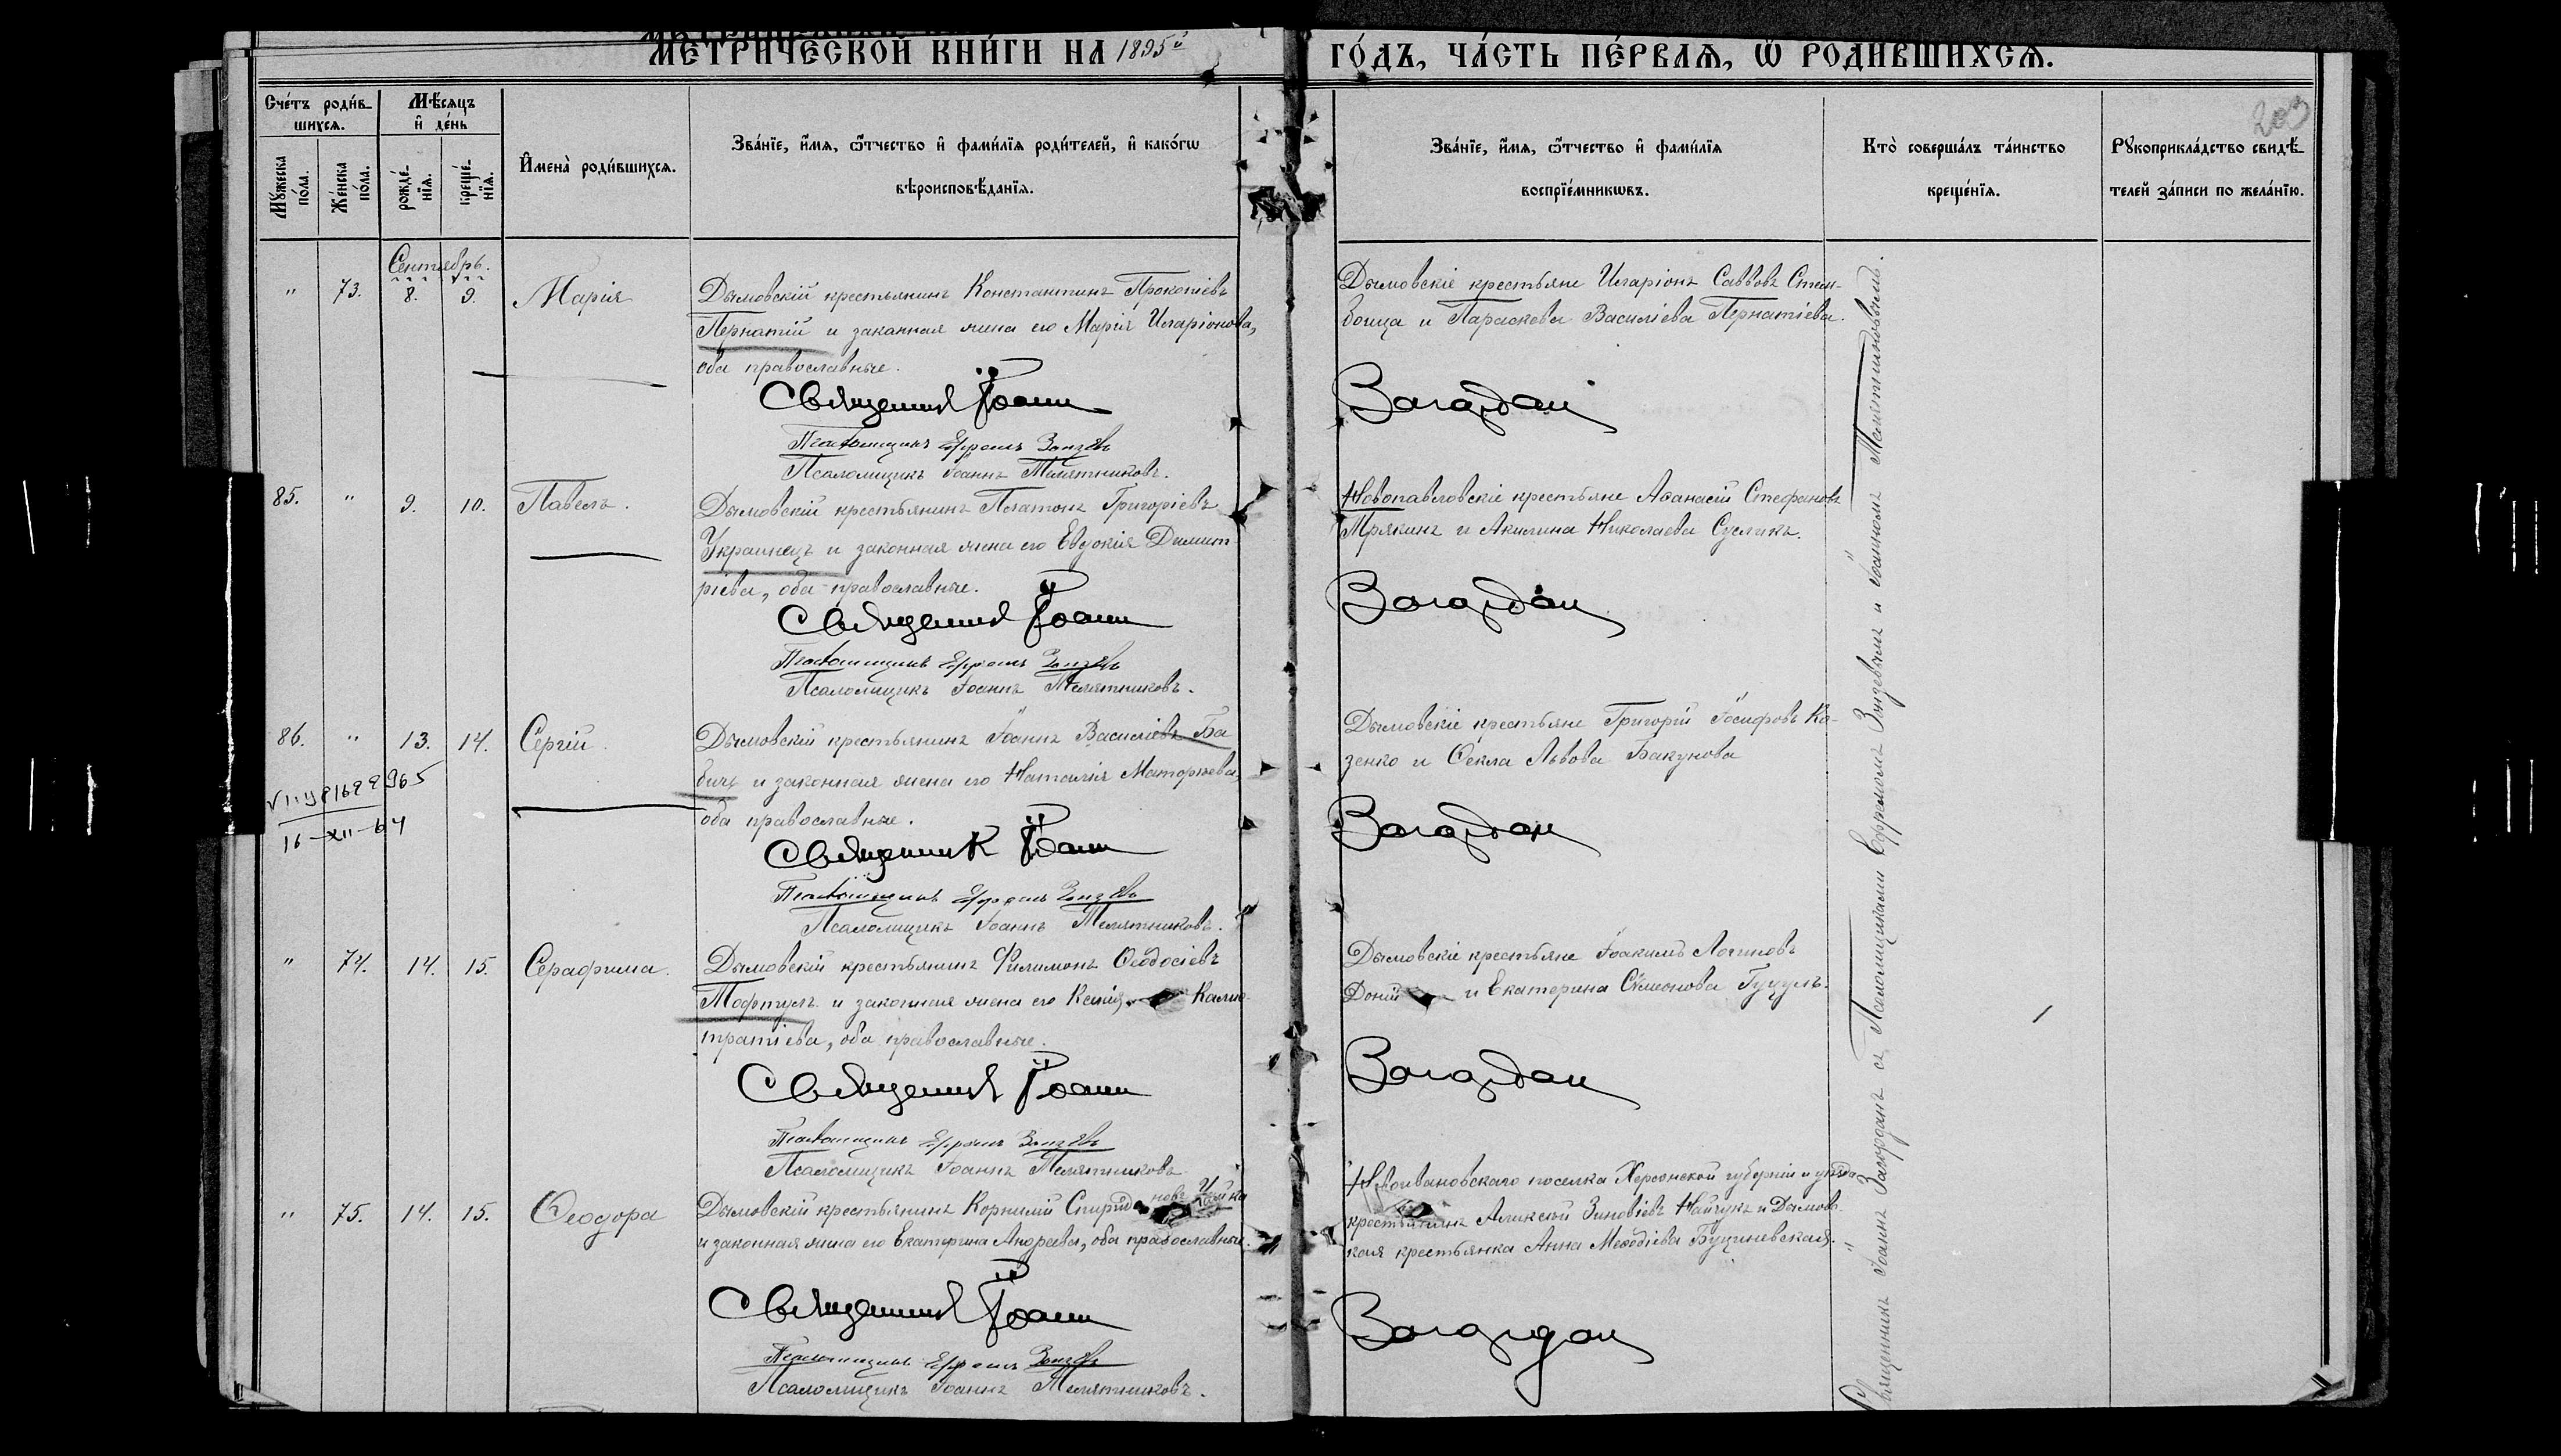 МЕТРИЧЕСКОЙ КНИ́ГИ НА 1895й ГО́ДЪ, ЧА́СТЬ ПЕ́РВАѦ, Ѡ РОДИ́ВШИХСѦ.
203
Сче́тъ роди́в-
шихсѧ.
Мꙋ́жеска
по́ла.
Же́нска
по́ла.
Мѣ́сѧцъ
и҆ де́нь
рожде́-
нїѧ.
креще́-
нїѧ.
И҆мена̀ роди́вшихсѧ.
Зва́нїе, и҆́мѧ, ѻ҆́тчество и҆ фами́лїѧ роди́телей, и҆ како́гѡ
вѣроисповѣ́данїѧ.
Зва́нїе, и҆́мѧ, ѻ҆́тчество и҆ фами́лїѧ
воспрїе́мникѡвъ.
Кто̀ соверша́лъ та́инство
креще́нїѧ.
Рꙋкоприкла́дство свидѣ́-
телей за́писи по жела́нїю.
Сентябрь.
" 73. 8. 9. Марія
Дымовскій крестьянинъ Константинъ Прокопіевъ
Пернатій и законная жена его Марія Иларіонова,
оба православные.
Священникъ Іоаннъ
Псаломщикъ Ефремъ
Псаломщикъ Іоаннъ Телятниковъ.
Дымовскіе крестьяне Иларіонъ Саввовъ Стам-
болца и Параскева Василіева Пернатіева.
Загордан
85. " 9. 10. Павелъ.
Дымовскій крестьянинъ Платонъ Григоріевъ
Украинецъ и законная жена его Евдокія Димит-
ріева, оба православные.
Священникъ Іоаннъ
Псаломщикъ Ефремъ
Псаломщикъ Іоаннъ Телятниковъ.
Новопавловскіе крестьяне Аѳанасій Стефановъ
Мрякинъ и Акилина Николаева Сусликъ.
Загордан
86. " 13. 14. Сергій.
16-XII-64
Дымовскій крестьянинъ Іоаннъ Василіевъ Ба-
бичъ и законная жена его Наталія
оба православные.
Священник Іоаннъ
Псаломщикъ Ефремъ
Псаломщикъ Іоаннъ Телятниковъ.
Дымовскіе крестьяне Григорій Іосифовъ Ко-
зенко и Ѳекла Львова Бакунова
Загордан
" 74. 14. 15. Серафима.
Дымовскій крестьянинъ Филимонъ Ѳеодосіевъ
Тофтулъ и законная жена его Ксенія Калис-
тратіева, оба православные.
Священникъ Іоаннъ
Псаломщикъ Ефремъ
Псаломщикъ Іоаннъ Телятниковъ
Дымовскіе крестьяне Іоакимъ Логиновъ
Доній и Екатерина Сѵмонова Гуцулъ.
Загордан
" 75. 14. 15. Ѳеодора
Дымовскій крестьянинъ Корнилій Спиридоновъ Чайка
и законная жена его Екатерина Андреева, оба православные.
Священникъ Іоаннъ
Псаломщикъ Ефремъ
Псаломщикъ Іоаннъ Телятниковъ.
Новоивановскаго поселка Херсонской губерніи и уѣзда
крестьянинъ Алексѣй Зиновіевъ Найчукъ и Дымовс-
кая крестьянка Анна Меѳодіева Буциневская.
Загордан
Священникъ Іоаннъ Загорданъ съ Псаломщиками Ефремомъ и Іоанномъ Телятниковымъ.